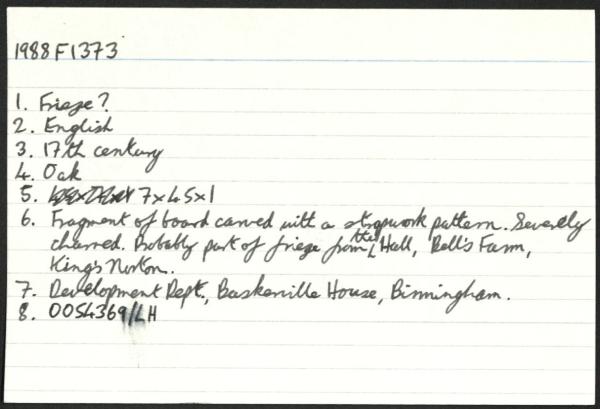 1988F1373
1. Frieze?
2. English
3. 17th century
4. Oak
5. 7x45x1
6. Fragment of board carved with a strapwork pattern. Severely
charred. Probably part of frieze from the Hall, Bell's Farm,
King's Norton.
7. Development Dept., Baskerville House, Birmingham.
8. OOS4369/LH